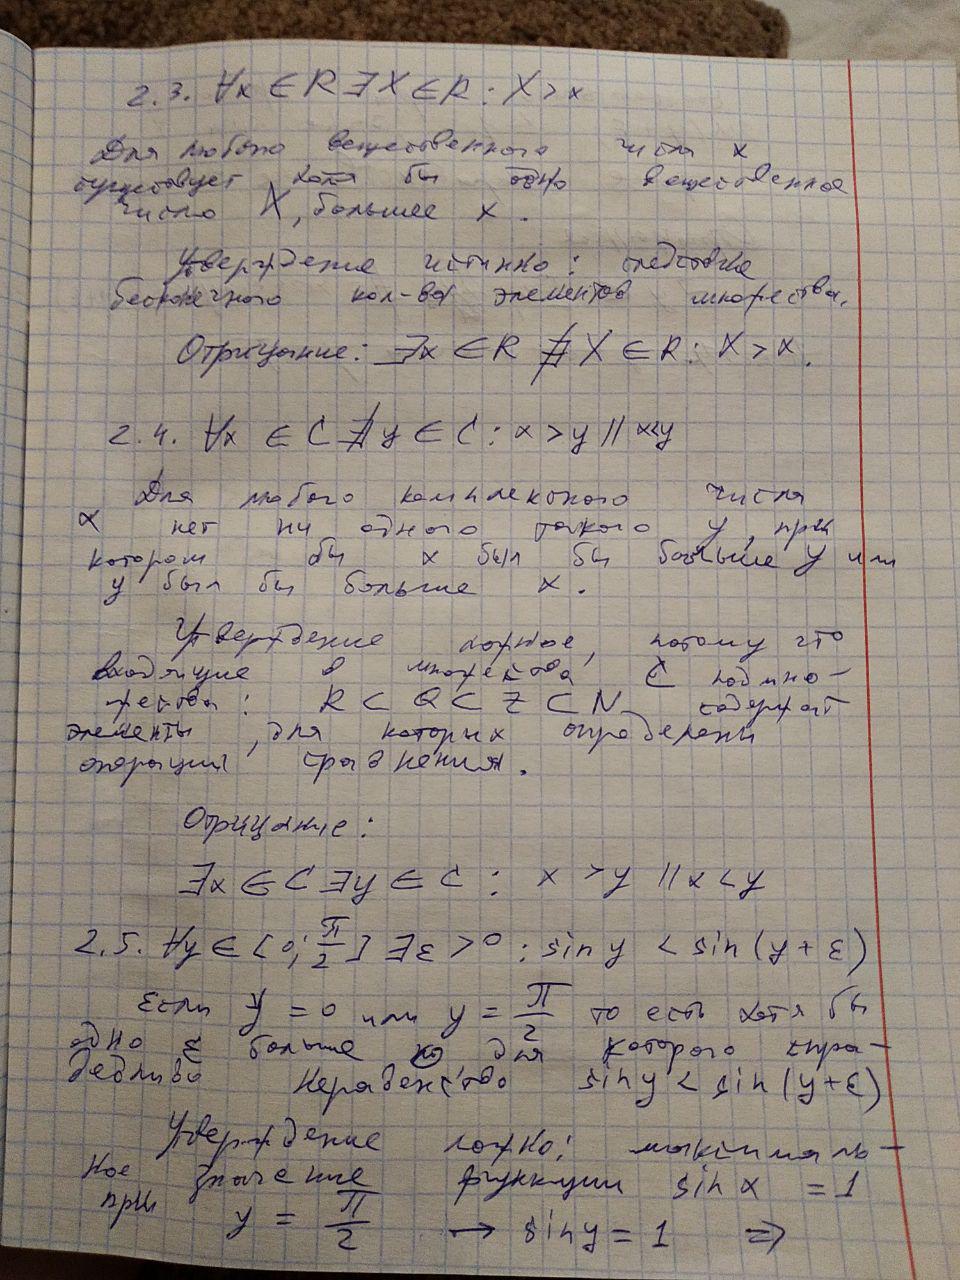 2.3. ∀x ∈ R ∃X ∈ R : X > x
Для любого вещественного числа x
существует хотя бы одно вещественное
число X, большее x.
Утверждение истинно: следствие
бесконечного кол-ва элементов множества.
Отрицание: ∃x ∈ R ∄ X ∈ R : X > x.
2.4. ∀x ∈ C ∄y ∈ C : x > y || x < y
Для любого комплексного числа
x нет ни одного такого y, при
котором бы x был бы больше y или
y был бы больше x.
Утверждение ложное, потому что
входящие в множества C подмно-
жества: R ⊂ Q ⊂ Z ⊂ N содержат
элементы, для которых определены
операции сравнения.
Отрицание:
∃x ∈ C ∃y ∈ C : x > y || x < y
2.5. ∀y ∈ [0; π/2] ∃ε > 0 : sin y < sin (y + ε)
Если y = 0 или y = π/2 то есть хотя бы
одно ε больше 0 для которого спра-
ведливо неравенство sin y < sin (y + ε)
Утверждение ложно: максималь-
ное значение функции sin x = 1
при y = π/2 → sin y = 1 ⇒